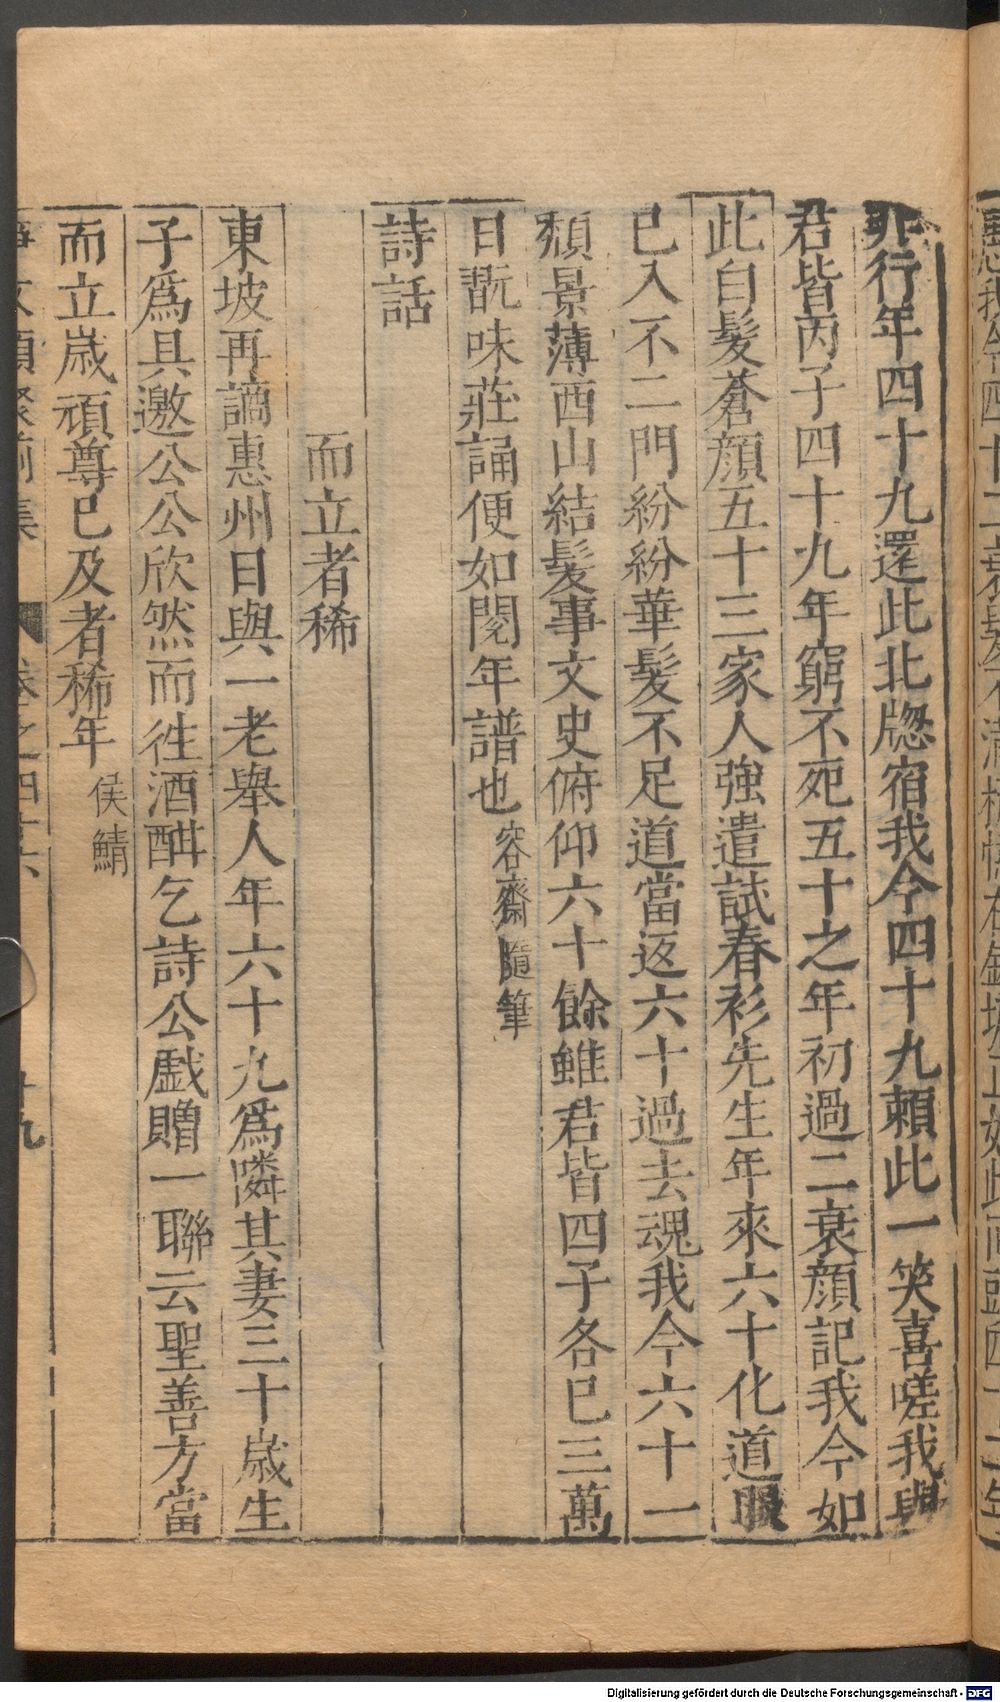 非行年四十九還此北牎宿我今四十九賴此一笑喜嗟我與
君皆丙子四十九年窮不死五十之年初過二衰顏記我今如
此白髮蒼顏五十三家人強遣試春衫先生年來六十化道眼
已入不二門紛紛華髮不足道當返六十過去魂我今六十一
頹景薄西山結髮事文史俯仰六十餘雖君皆四子各已三萬
日翫味莊誦便如閱年譜也容齋隨筆
詩話
而立者稀
東坡再謫惠州日與一老舉人年六十九爲隣其妻三十歲生
子爲具邀公公欣然而徃酒酣乞詩公戱贈一聯云聖善方當
而立歲頑尊已及者稀年侯鯖
事文類聚前集 卷之四十六 十九
Digitalisierung gefördert durch die Deutsche Forschungsgemeinschaft - DFG